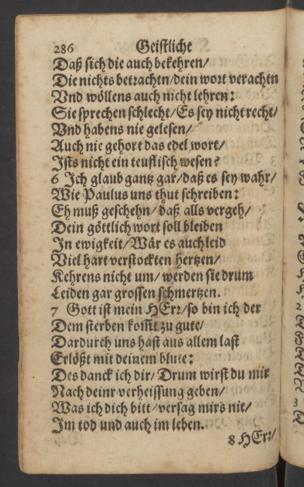 286 Geistliche
Daß sich die auch bekehren/
Die nichts betrachtn/dein wort verachtn
Vnd wöllens auch nicht lehren:
Sie sprechen schlecht/Es sey nicht recht/
Vnd habens nie gelesen/
Auch nie gehort das edel wort/
Ists nicht ein teuflisch wesen?
6 Ich glaub gantz gar/daß es sey wahr/
Wie Paulus uns thut schreiben:
Eh muß geschehn/ daß alls vergeh/
Dein göttlich wort soll bleiben
In ewigkeit/ Wär es auch leid
Viel hart verstockten hertzen/
Kehrens nicht um/ werden sie drum
Leiden gar grossen schmertzen.
7 Gott ist mein HErr/so bin ich der
Dem sterben kom̃t zu gute/
Dardurch uns hast aus allem last
Erlöst mit deinem blute:
Des danck ich dir/ Drum wirst du mir
Nach deinr verheissung geben/
Was ich dich bitt/ versag mirs nit/
Im tod und auch im leben.
8 HErr/